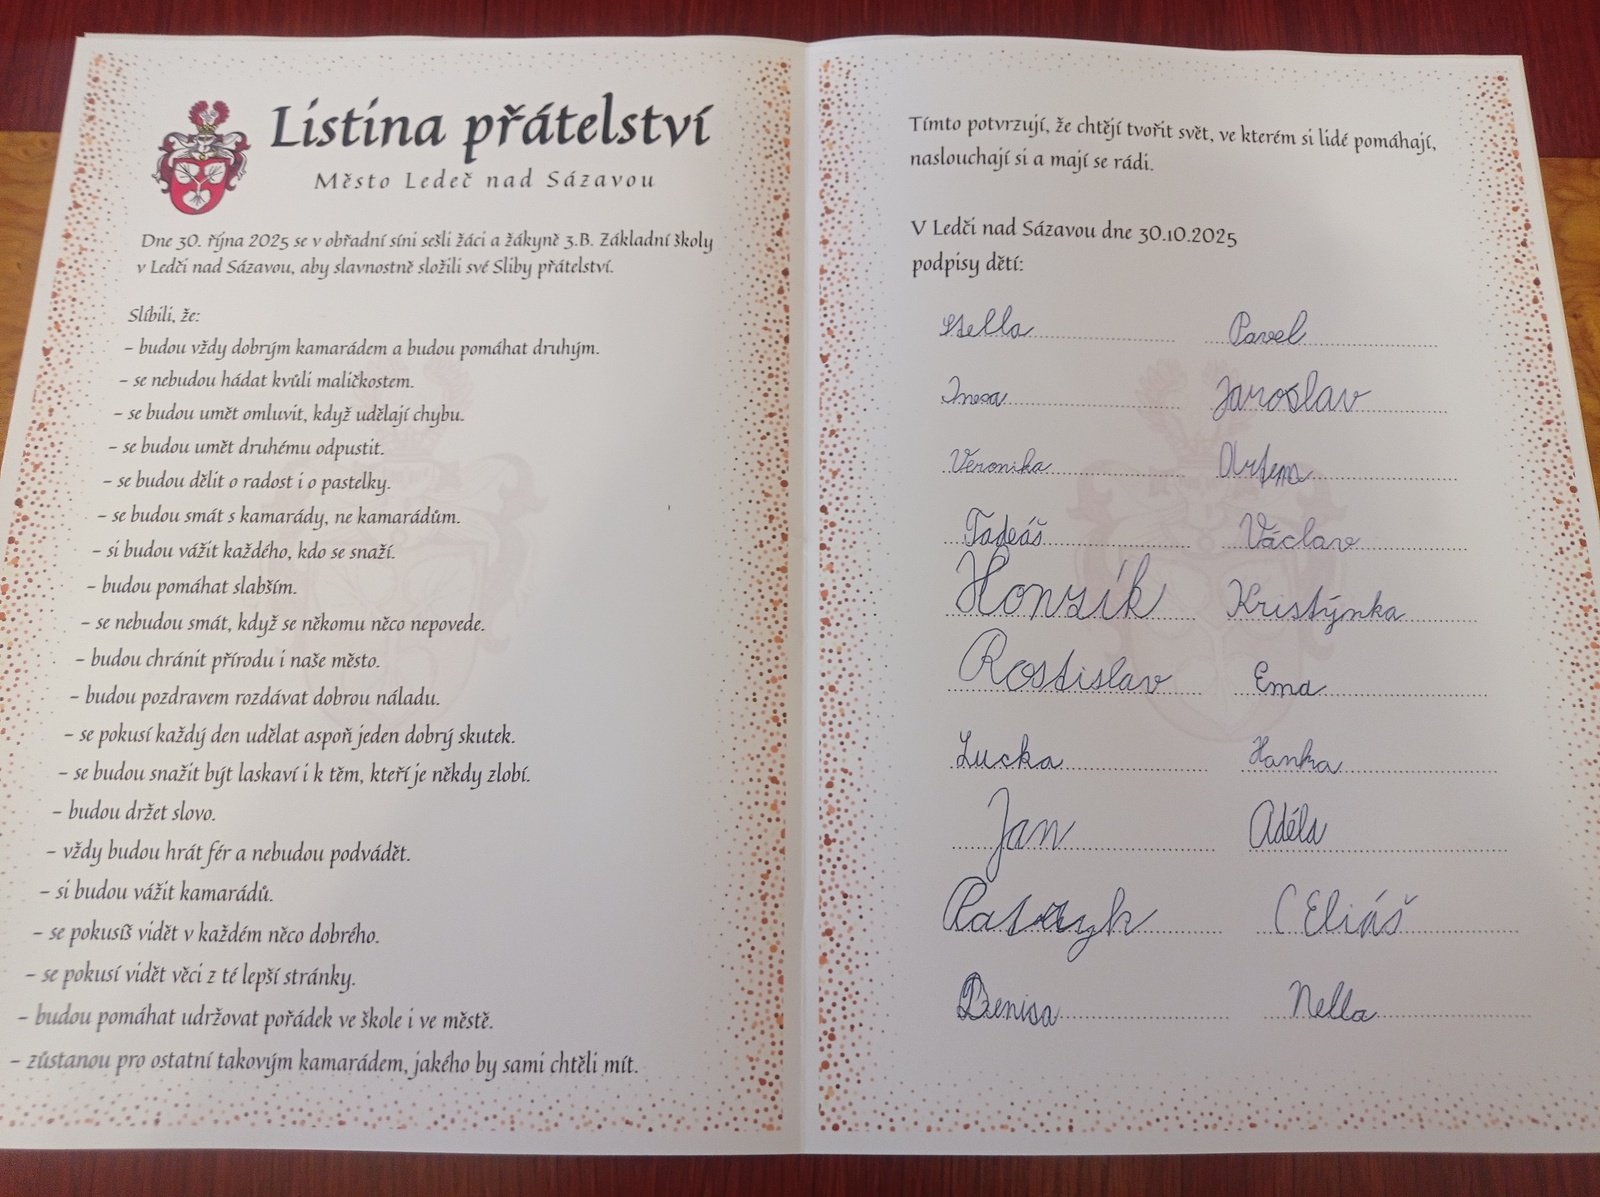 Listina přátelství
Město Ledeč nad Sázavou
Dne 30. října 2025 se v obřadní síni sešli žáci a žákyně 3.B. Základní školy
v Ledči nad Sázavou, aby slavnostně složili své Sliby přátelství.
Slíbili, že:
– budou vždy dobrým kamarádem a budou pomáhat druhým.
– se nebudou hádat kvůli maličkostem.
– se budou umět omluvit, když udělají chybu.
– se budou umět druhému odpustit.
– se budou dělit o radost i o pastelky.
– se budou smát s kamarády, ne kamarádům.
– si budou vážit každého, kdo se snaží.
– budou pomáhat slabším.
– se nebudou smát, když se někomu něco nepovede.
– budou chránit přírodu i naše město.
– budou pozdravem rozdávat dobrou náladu.
– se pokusí každý den udělat aspoň jeden dobrý skutek.
– se budou snažit být laskaví i k těm, kteří je někdy zlobí.
– budou držet slovo.
– vždy budou hrát fér a nebudou podvádět.
– si budou vážit kamarádů.
– se pokusíš vidět v každém něco dobrého.
– se pokusí vidět věci z té lepší stránky.
– budou pomáhat udržovat pořádek ve škole i ve městě.
– zůstanou pro ostatní takovým kamarádem, jakého by sami chtěli mít.
Tímto potvrzují, že chtějí tvořit svět, ve kterém si lidé pomáhají,
naslouchají si a mají se rádi.
V Ledči nad Sázavou dne 30.10.2025
podpisy dětí:
Stella Pavel
Inesa Jaroslav
Veronika Artem
Tadeáš Václav
Honzík Kristýnka
Rostislav Ema
Lucka Hanka
Jan Adéla
Patryk Eliáš
Denisa Nella